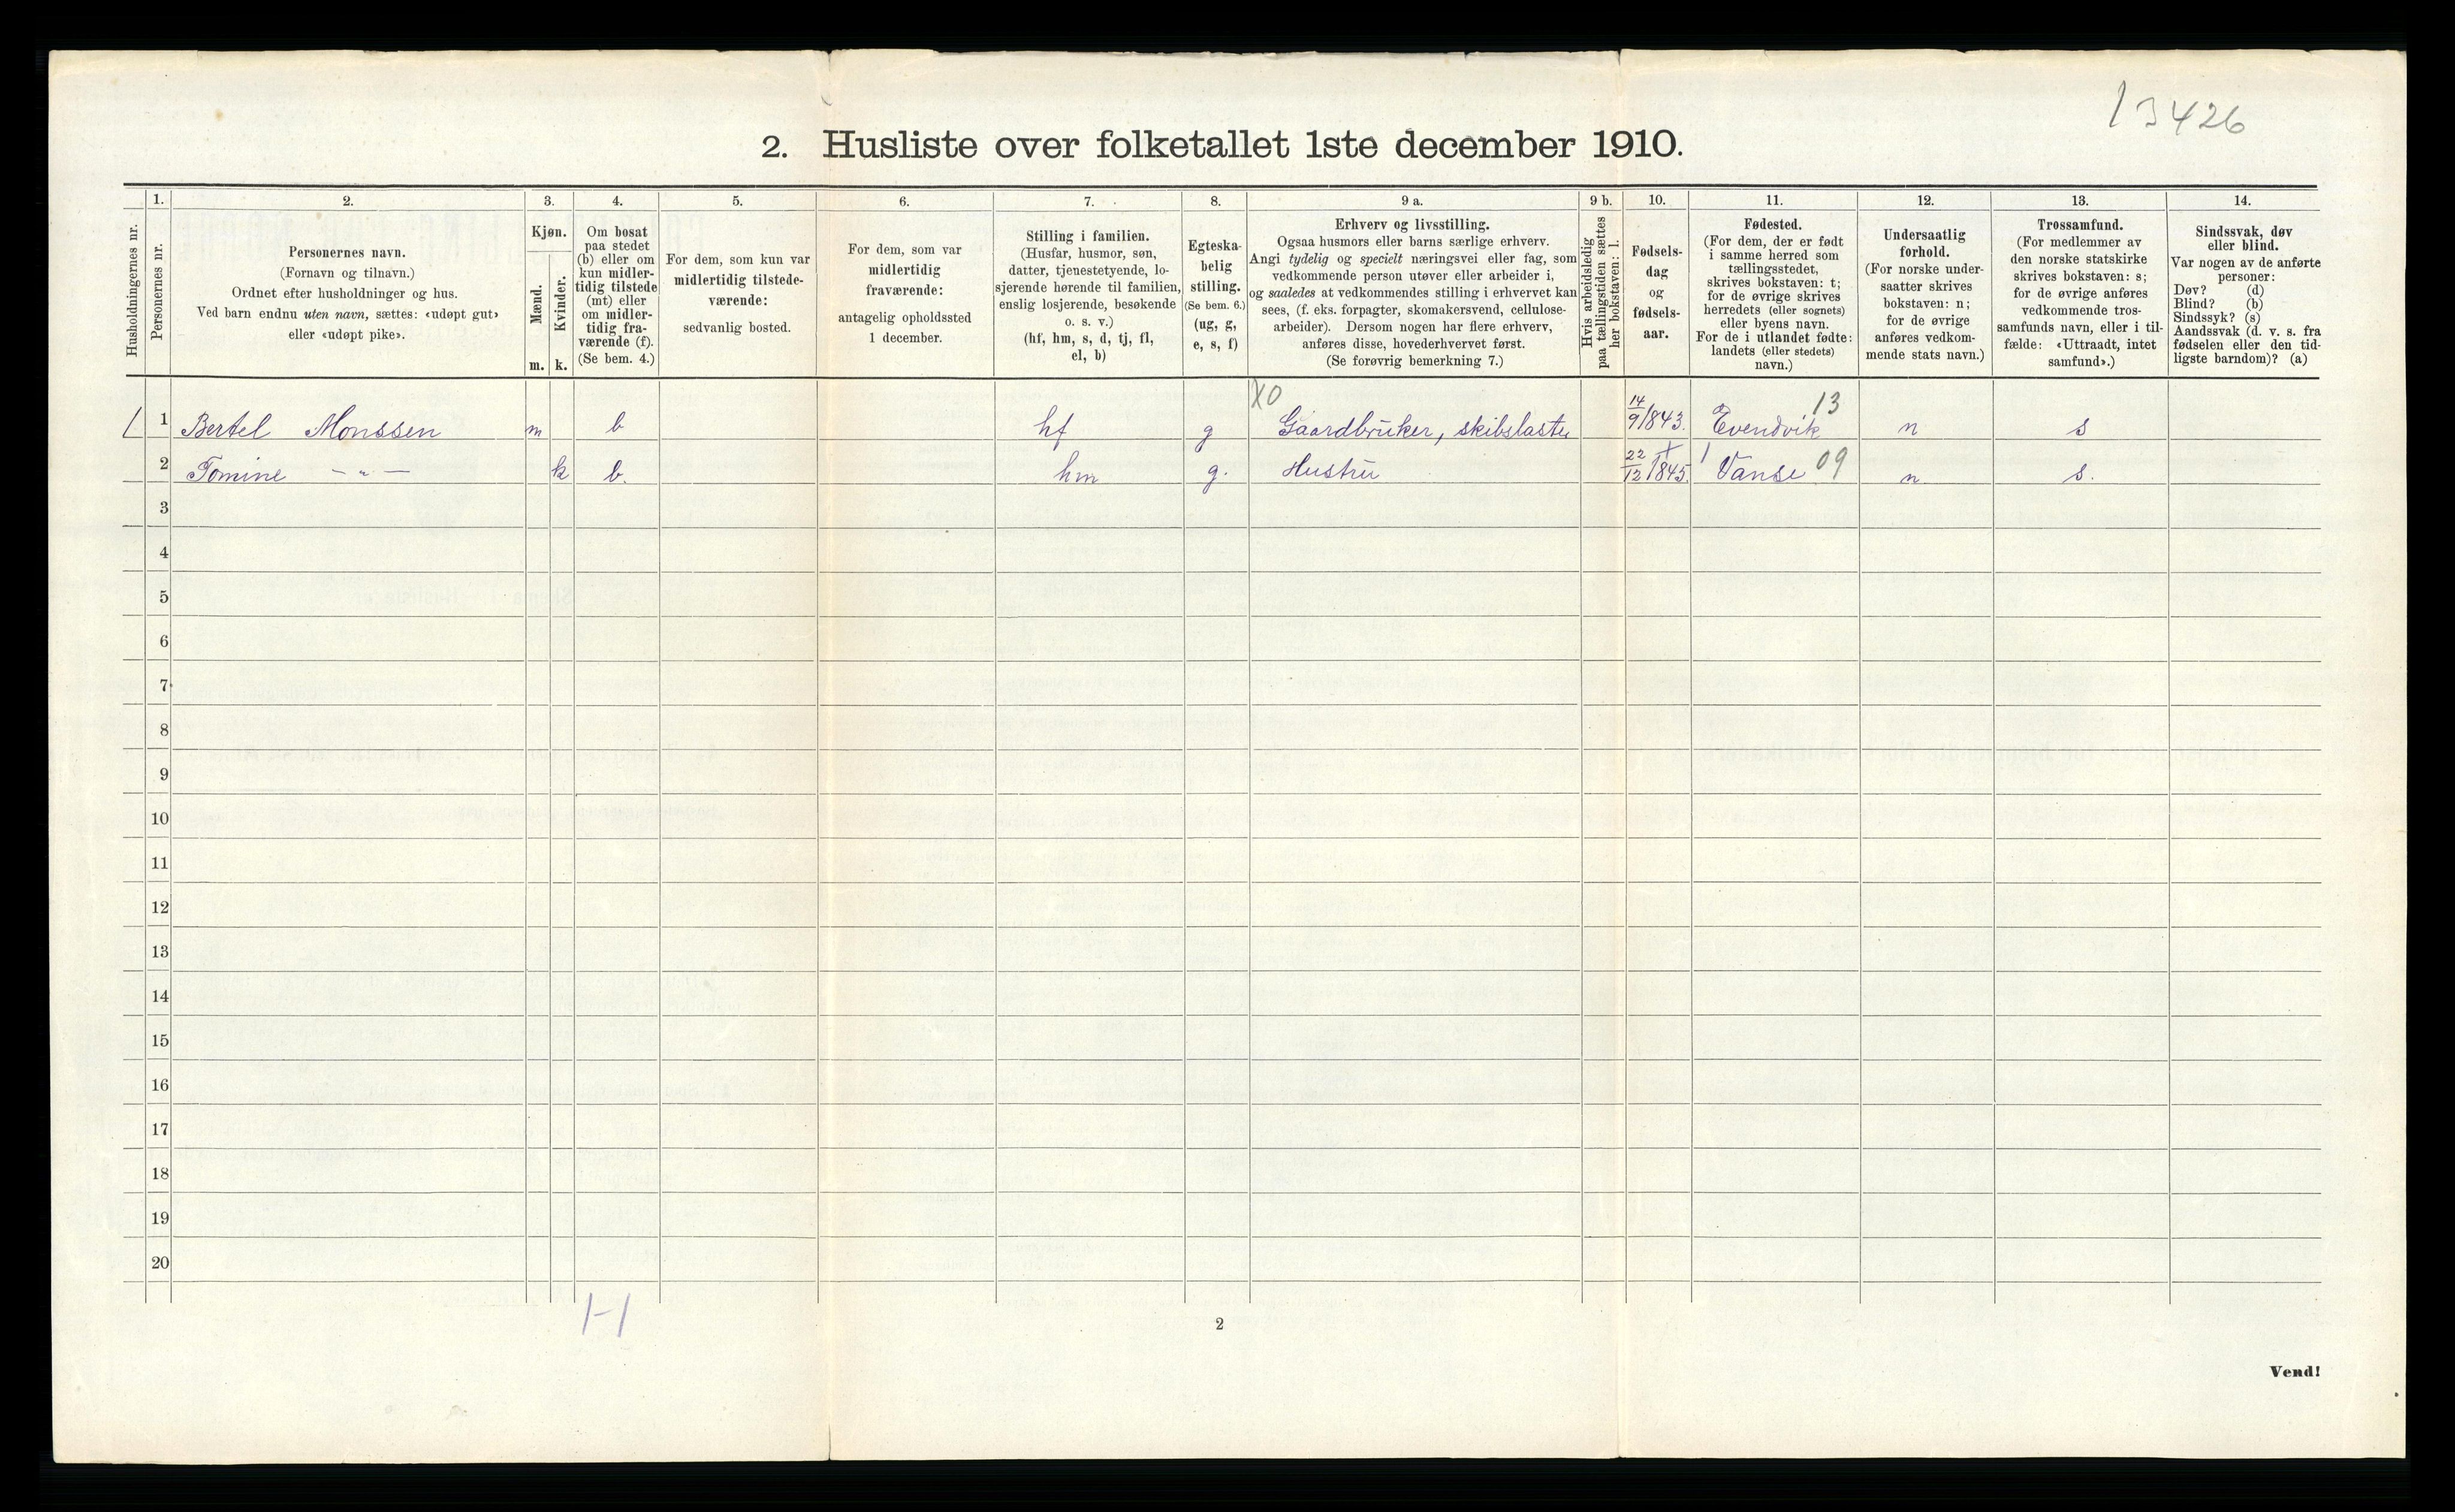 13426
2. Husliste over folketallet 1ste december 1910.
Husholdningernes nr.
1.
Personernes nr.
2.
Personernes navn.
(Fornavn og tilnavn.)
Ordnet efter husholdninger og hus.
Ved barn endnu uten navn, sættes: «udøpt gut»
eller «udøpt pike».
3.
Kjøn.
Mænd.
Kvinder.
m. k.
4.
Om bosat
paa stedet
(b) eller om
kun midler-
tidig tilstede
(mt) eller
om midler-
tidig fra-
værende (f).
(Se bem. 4.)
5.
For dem, som kun var
midlertidig tilstede-
værende:
sedvanlig bosted.
6.
For dem, som var
midlertidig
fraværende:
antagelig opholdssted
1 december.
7.
Stilling i familien.
(Husfar, husmor, søn,
datter, tjenestetyende, lo-
sjerende hørende til familien,
enslig losjerende, besøkende
o. s. v.)
(hf, hm, s, d, tj, fl,
el, b)
8.
Egteska-
belig
stilling.
(Se bem. 6.)
(ug, g,
e, s, f)
9 a.
Erhverv og livsstilling.
Ogsaa husmors eller barns særlige erhverv.
Angi tydelig og specielt næringsvei eller fag, som
vedkommende person utøver eller arbeider i,
og saaledes at vedkommendes stilling i erhvervet kan
sees, (f. eks. forpagter, skomakersvend, cellulose-
arbeider). Dersom nogen har flere erhverv,
anføres disse, hovederhvervet først.
(Se forøvrig bemerkning 7.)
9 b.
Hvis arbeidsledig
paa tællingstiden sættes
her bokstaven: l.
10.
Fødsels-
dag
og
fødsels-
aar.
11.
Fødested.
(For dem, der er født
i samme herred som
tællingsstedet,
skrives bokstaven: t;
for de øvrige skrives
herredets (eller sognets)
eller byens navn.
For de i utlandet fødte:
landets (eller stedets)
navn.)
12.
Undersaatlig
forhold.
(For norske under-
saatter skrives
bokstaven: n;
for de øvrige
anføres vedkom-
mende stats navn.)
13.
Trossamfund.
(For medlemmer av
den norske statskirke
skrives bokstaven: s;
for de øvrige anføres
vedkommende tros-
samfunds navn, eller i til-
fælde: «Uttraadt, intet
samfund».)
14.
Sindssvak, døv
eller blind.
Var nogen av de anførte
personer:
Døv? (d)
Blind? (b)
Sindssyk? (s)
Aandssvak (d. v. s. fra
fødselen eller den tid-
ligste barndom)? (a)
X0 13
1 1 Bertel Monssen m b hf g Gaardbruker, skibslaster 14/9 1843. Evendvik n s
2 Tomine – „ – k b. hm g. Hustru 22/12 1845. Vanse 09 n s.
3
4
5
6
7
8
9
10
11
12
13
14
15
16
17
18
19
20
1-1
2
Vend!